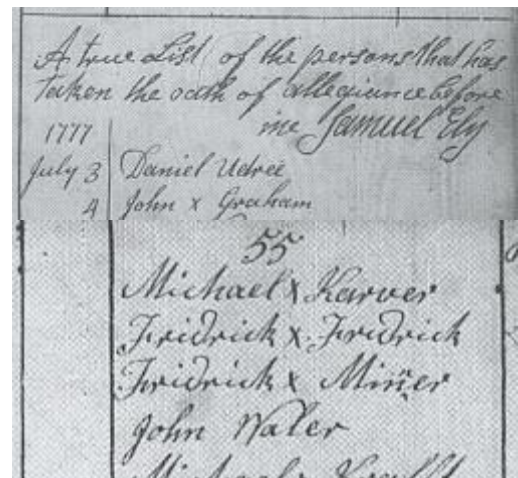 A true List of the persons that has
taken the oath of allegiance before
1777 me Samuel Ely
July 3 Daniel Udree
4 John x Graham
55
Michael x Karver
Fridrick x Fridrick
Fridrick x Miner
John Waler
Michael x